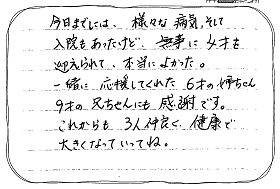 今日までには、様々な病気、そして
入院もあったけど、無事に4才も
迎えられて、本当によかった。
一緒に応援してくれた6才の姉ちゃん
9才の兄ちゃんにも感謝です。
これからも3人仲良く、健康で
大きくなっていってね。